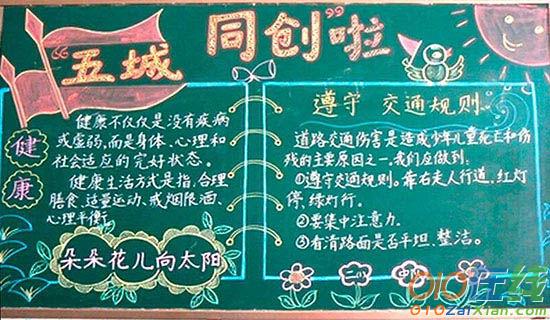 “五城同创”啦
健康
健康不仅仅是没有疾病
或虚弱,而是身体、心理和
社会适应的完好状态。
健康生活方式是指,合理
膳食、适量运动、戒烟限酒、
心理平衡。
朵朵花儿向太阳
遵守 交通规则。
道路交通伤害是造成少年儿童死亡和伤
残的主要原因之一,我们应做到:
①遵守交通规则。靠右走人行道,红灯
停,绿灯行。
②要集中注意力。
③看清路面是否平坦、整洁。
二(1) 中
010在线
010zaixian.com